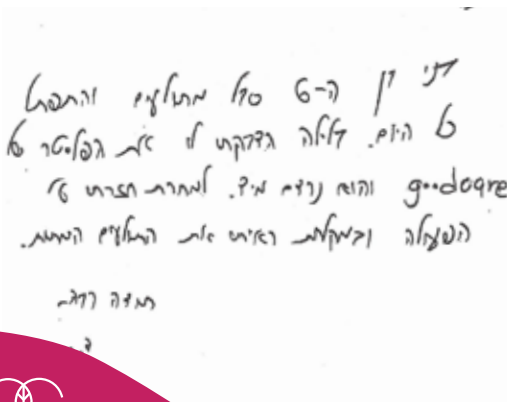 בני בן ה-6 סבל מתולעים והתפתל
כל היום. בלילה הדבקתי לו את הפלסטר של
goodcare והוא נרדם מיד. למחרת חזרתי על
הפעולה ובמקלחת ראיתי את התולעים המתות.
תודה רבה